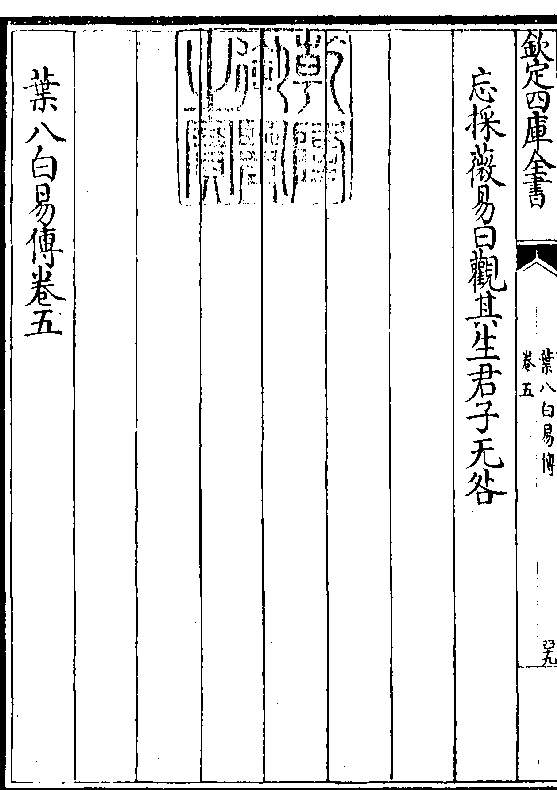 欽定四庫全書
葉八白易傳
卷五
忘採薇易曰觀其生君子无咎
乾隆御覽之寶
葉八白易傳卷五